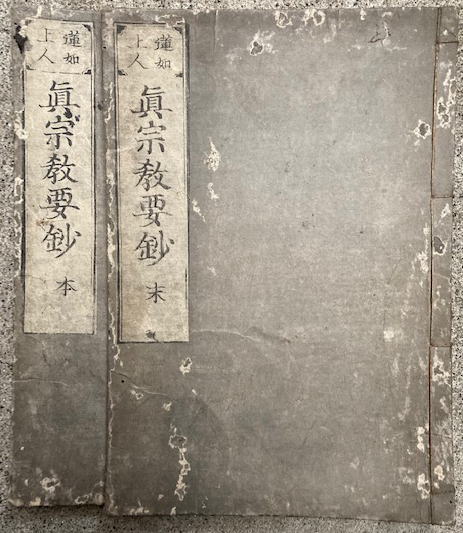 蓮如
上人
眞宗教要鈔
末
蓮如
上人
眞宗教要鈔
本